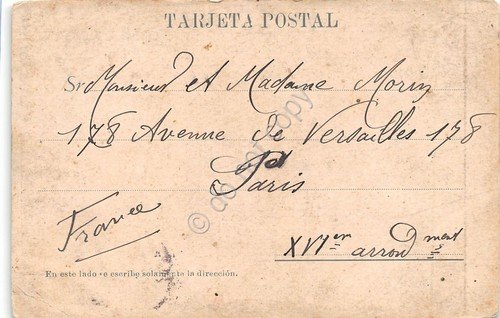 TARJETA POSTAL
Sr Monsieur et Madame Morin
178 Avenue de Versailles 178
Paris
France
XVIer arrondment
En este lado se escribe solamente la dirección.
© do not copy